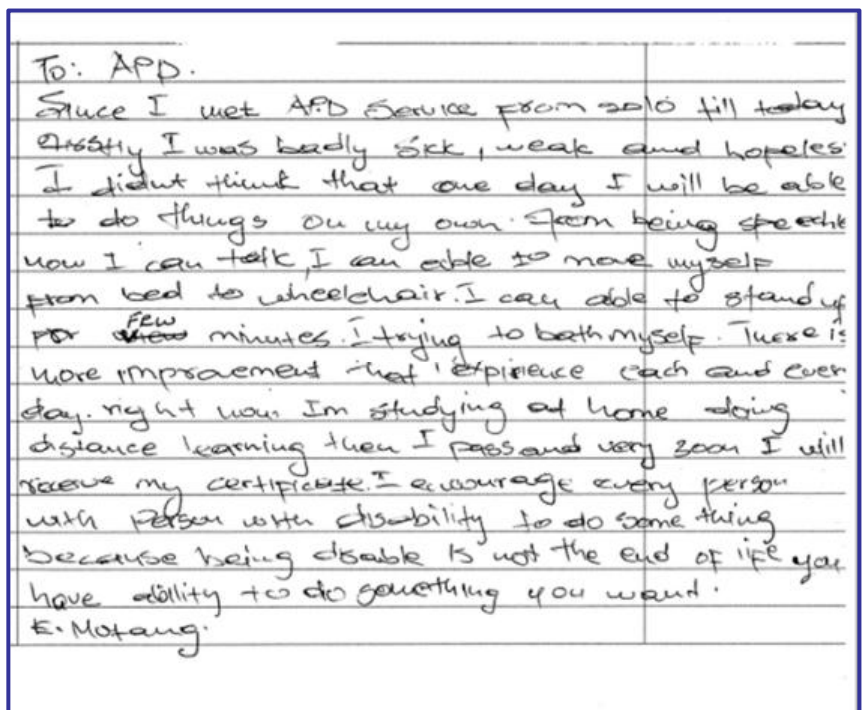 To: APD.
Since I met APD Service from 2010 till today
Firstly I was badly sick, weak and hopeles
I didnt think that one day I will be able
to do things on my own. From being speechl
now I can talk, I can able to move myself
from bed to wheelchair. I can able to stand up
for few minutes. I trying to bath myself. There is
more improvement that I expirience each and ever
day. right now Im studying at home doing
distance learning then I pass and very soon I will
receive my certificate. I encourage every person
with person with disability to do some thing
because being disable is not the end of life you
have ability to do something you want.
E. Motaung.